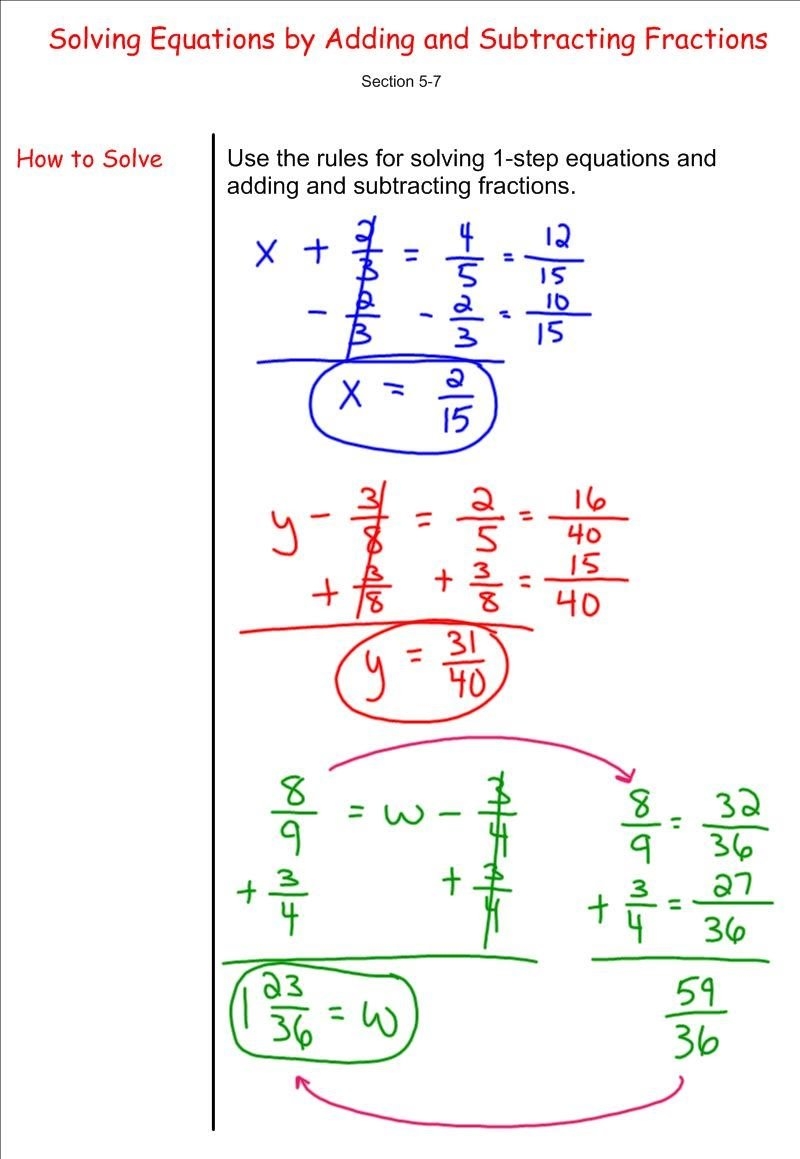 Solving Equations by Adding and Subtracting Fractions
Section 5-7
How to Solve
Use the rules for solving 1-step equations and
adding and subtracting fractions.
x + 2/3 = 4/5 = 12/15
- 2/3 - 2/3 = 10/15
x = 2/15
y - 3/8 = 2/5 = 16/40
+ 3/8 + 3/8 = 15/40
y = 31/40
8/9 = w - 3/4
+ 3/4 + 3/4
1 23/36 = w
8/9 = 32/36
+ 3/4 = 27/36
59/36